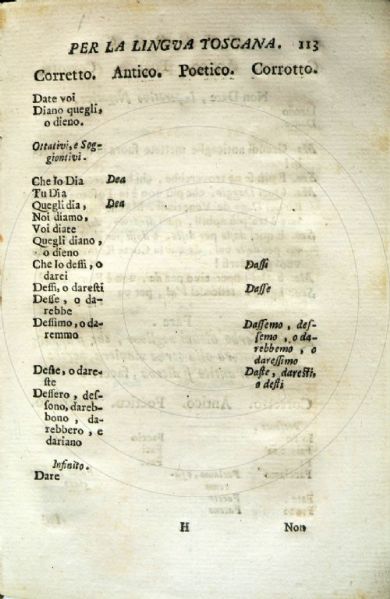 PER LA LINGVA TOSCANA. 113
Corretto. Antico. Poetico. Corrotto.
Date voi
Diano quegli,
o dieno.
Ottativi, e Sog-
giontivi.
Che Io Dia Dea
Tu Dia
Quegli dia, Dea
Noi diamo,
Voi diate
Quegli diano,
o dieno
Che Io dessi, o Dassi
darei
Dessi, o daresti
Desse, o da- Dasse
rebbe
Dessimo, o da- Dassemo, des-
remmo semo, o da-
rebbemo, o
daressimo
Deste, o dare- Daste, daresti,
ste o desti
Dessero, des-
sono, dareb-
bono, da-
rebbero, e
dariano
Infinito.
Dare
H Non